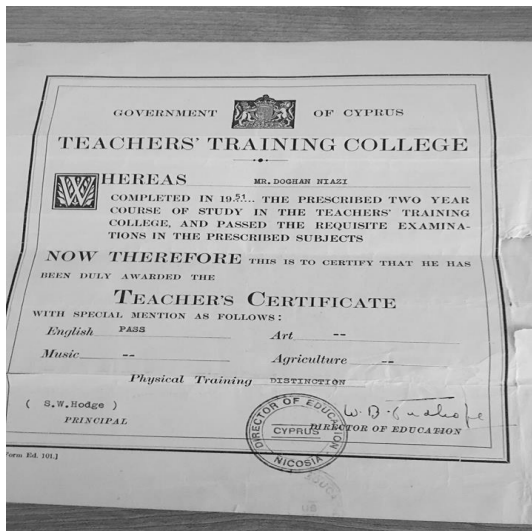 GOVERNMENT OF CYPRUS
TEACHERS' TRAINING COLLEGE
WHEREAS MR.DOGHAN NIAZI
COMPLETED IN 1951... THE PRESCRIBED TWO YEAR
COURSE OF STUDY IN THE TEACHERS' TRAINING
COLLEGE, AND PASSED THE REQUISITE EXAMINA-
TIONS IN THE PRESCRIBED SUBJECTS
NOW THEREFORE THIS IS TO CERTIFY THAT HE HAS
BEEN DULY AWARDED THE
TEACHER'S CERTIFICATE
WITH SPECIAL MENTION AS FOLLOWS:
English PASS Art --
Music -- Agriculture --
Physical Training DISTINCTION
( S.W.Hodge )
PRINCIPAL
DIRECTOR OF EDUCATION
CYPRUS
NICOSIA
DIRECTOR OF EDUCATION
Form Ed. 101.]